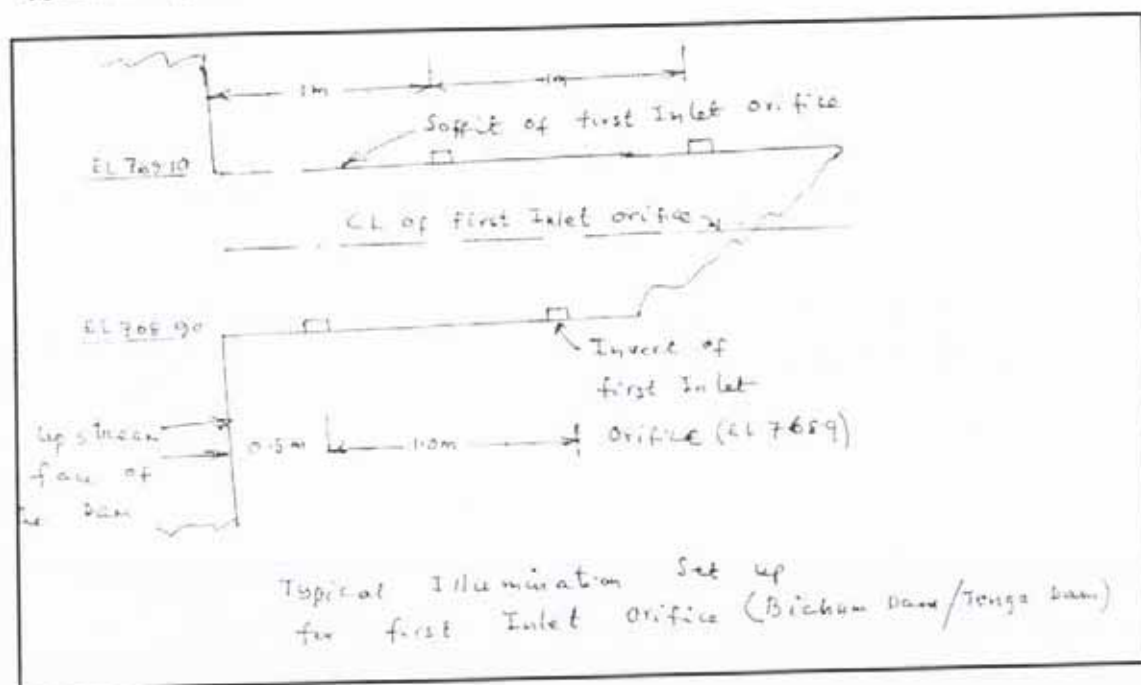 1m
1m
Soffit of first Inlet Orifice
EL 769.10
CL of first Inlet orifice
EL 768.90
Invert of
first Inlet
Orifice (EL 7689)
upstream
face of
Dam
0.5m
1.0m
Typical Illumination Set up
for first Inlet Orifice (Bichom Dam/Tenga Dam)